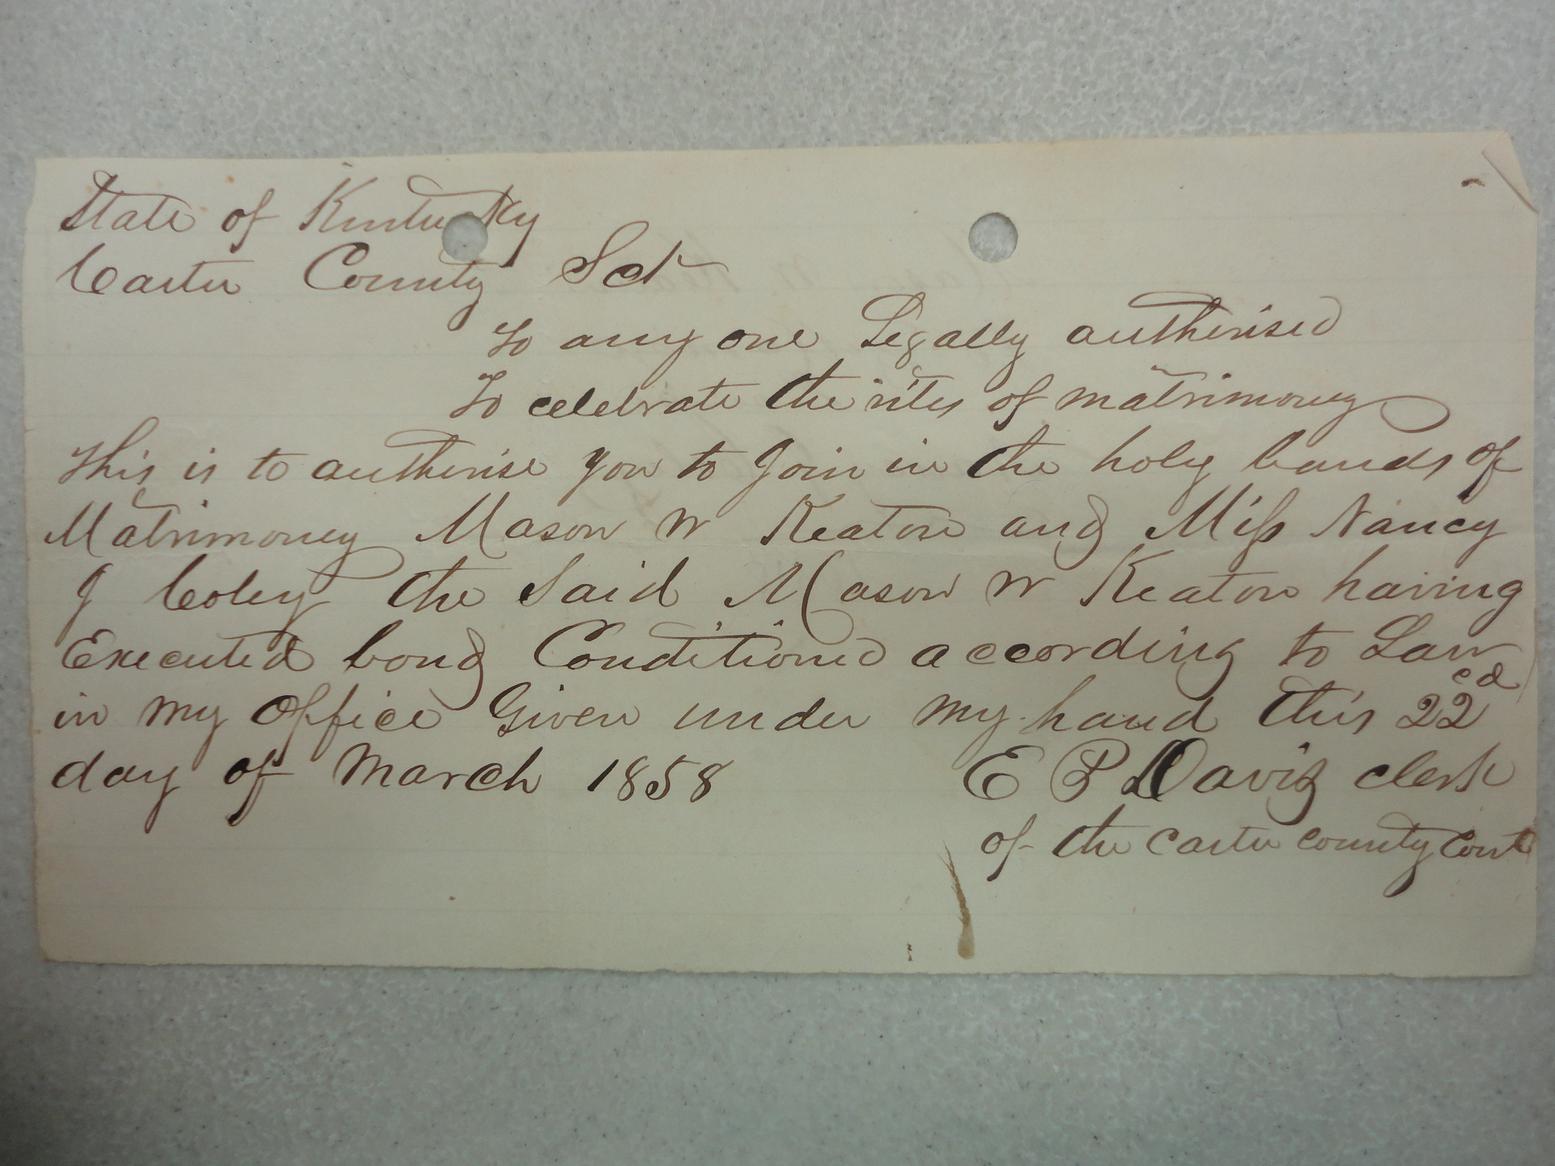 State of Kentucky
Carter County Sct
To any one Legally autherised
To celebrate the rites of matrimoney
This is to autherise you to Join in the holy bands of
Matrimoney Mason W Keaton and Miss Nancy
J Coley the Said Mason W Keaton having
Executed bond Conditioned according to Law
in my Office Given under my hand this 22cd
day of March 1858 E P Davis clerk
of the Carter county Court